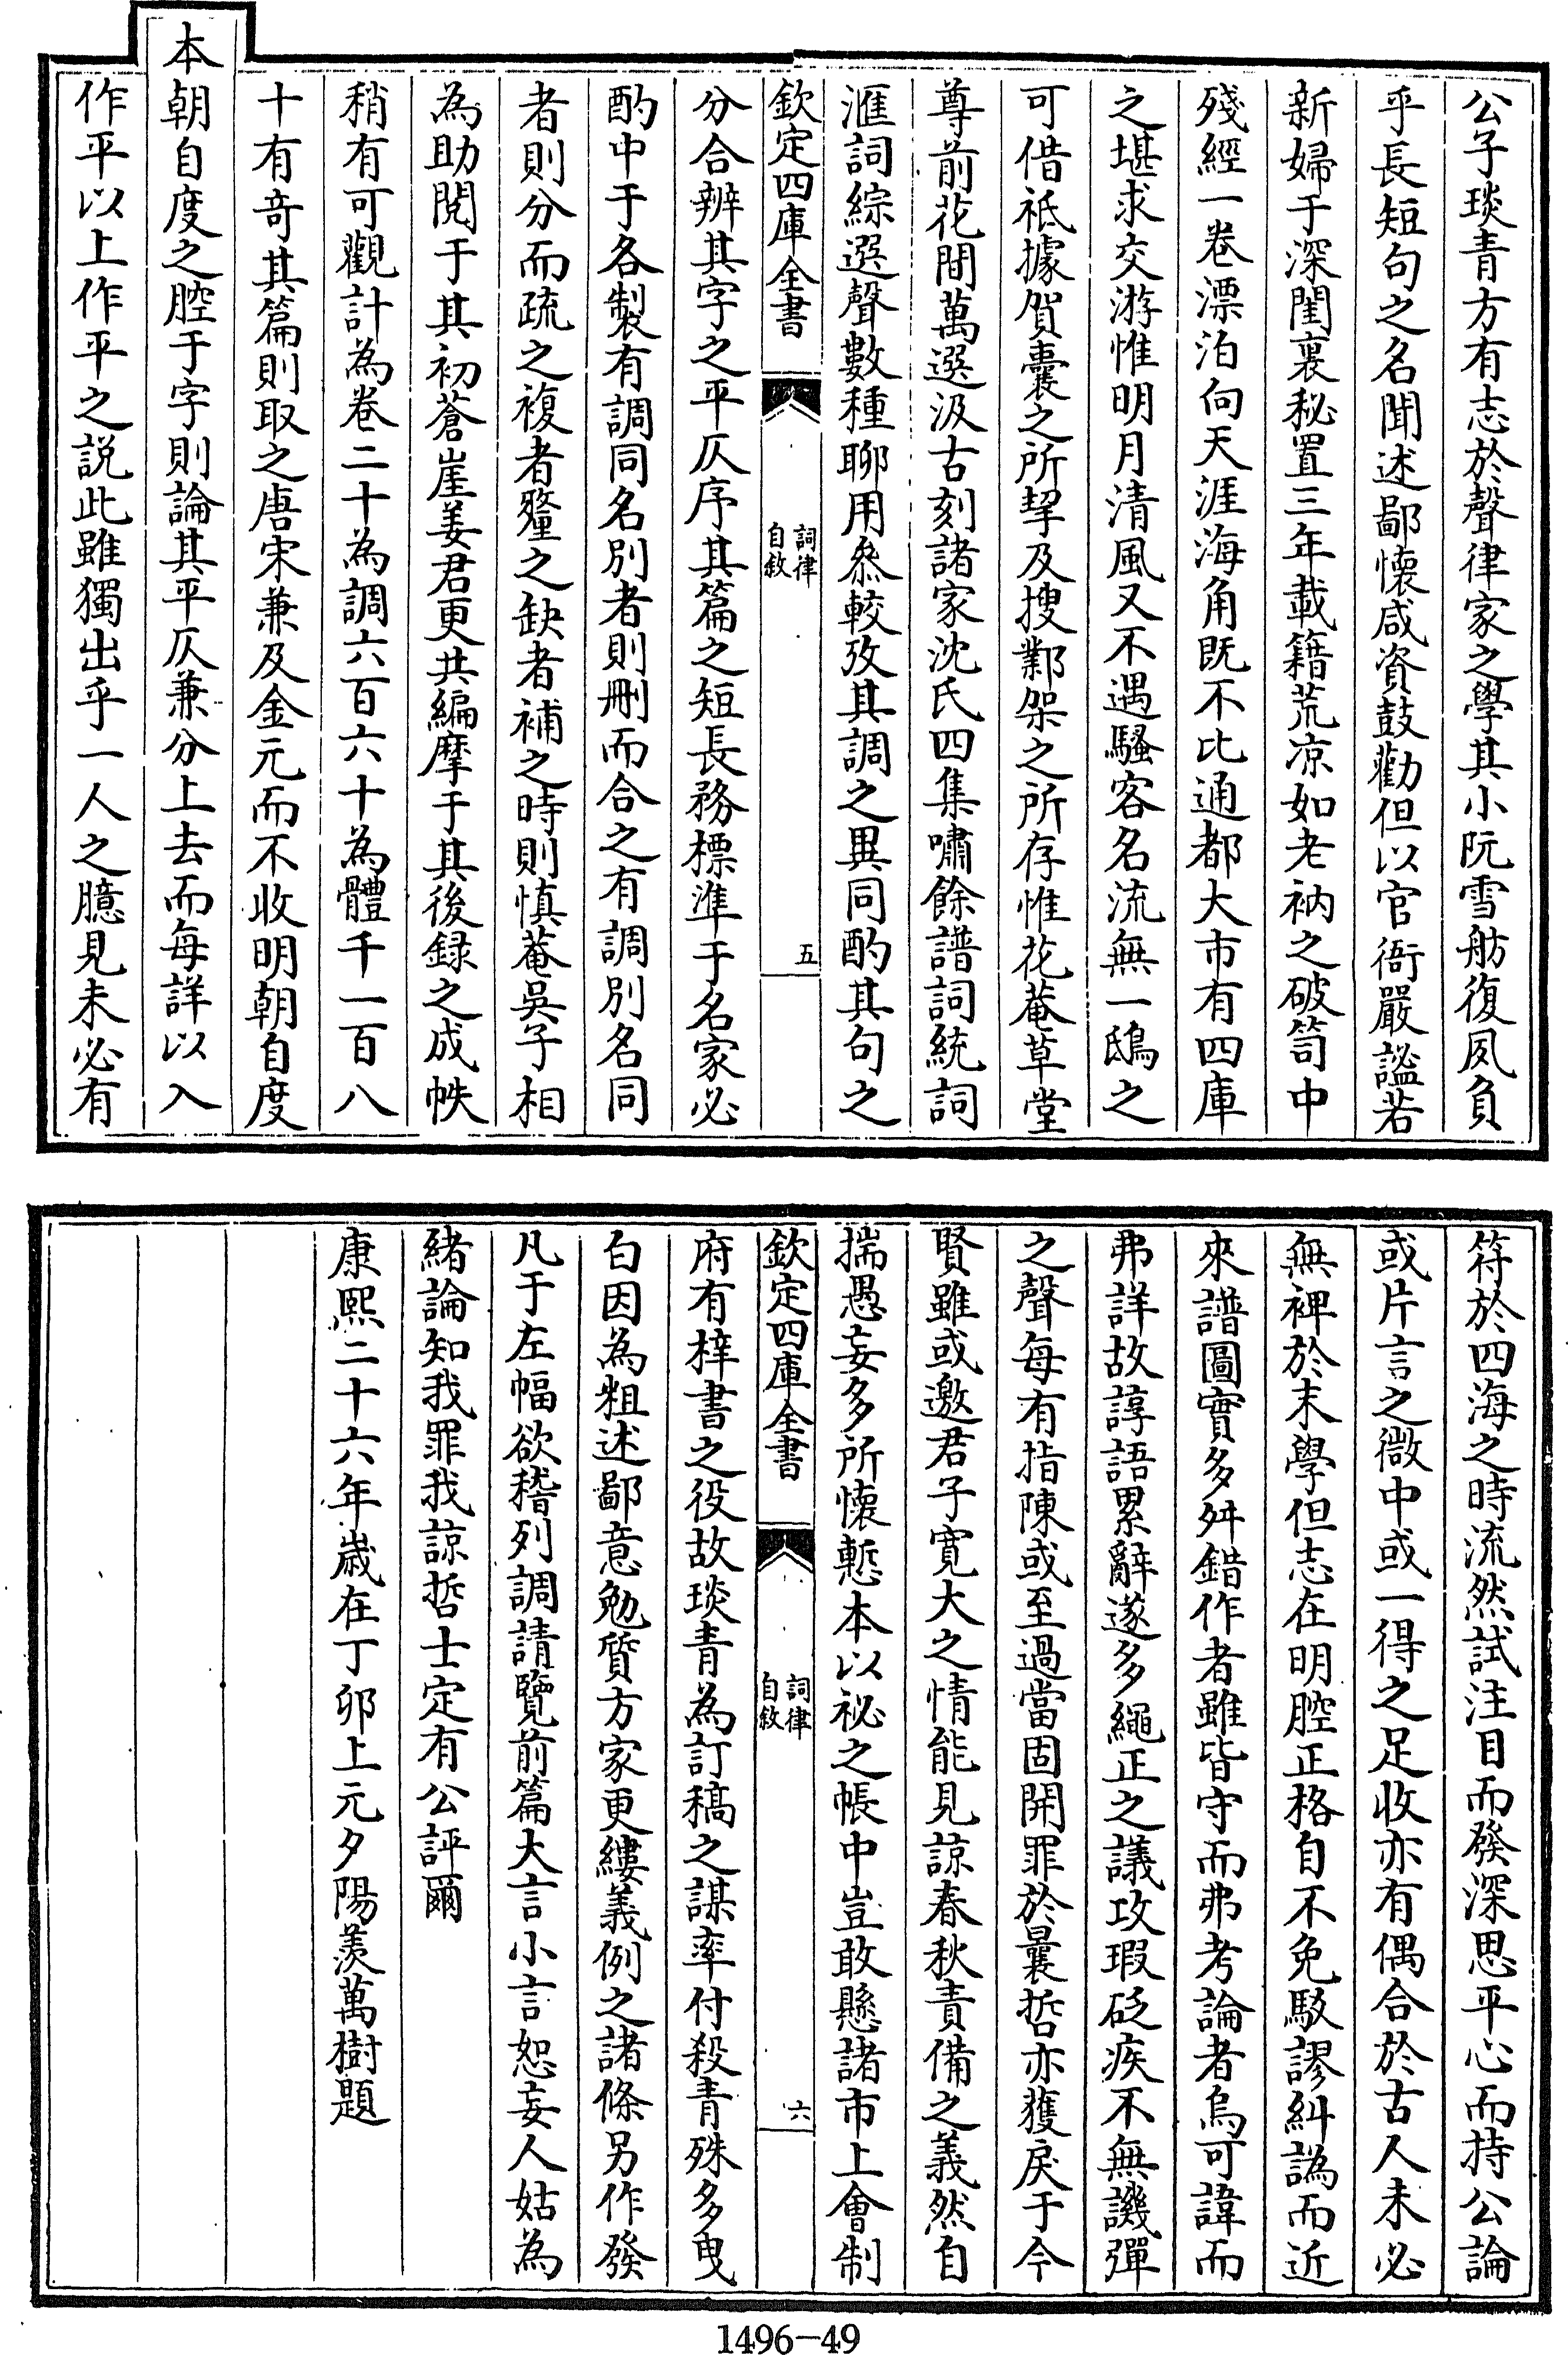 公子琰青方有志於聲律家之學其小阮雪舫復夙負
乎長短句之名聞述鄙懷咸資鼓勸但以官衙嚴謐若
新婦于深閨裏秘置三年載籍荒凉如老衲之破笥中
殘經一卷漂泊向天涯海角既不比通都大市有四庫
之堪求交游惟明月清風又不遇騷客名流無一鴟之
可借祗據賀囊之所挈及搜鄴架之所存惟花菴草堂
尊前花間萬選汲古刻諸家沈氏四集嘯餘譜詞統詞
滙詞綜選聲數種聊用叅較攷其調之異同酌其句之
欽定四庫全書
詞律
自敘
五
分合辨其字之平仄序其篇之短長務標準于名家必
酌中于各製有調同名別者則刪而合之有調別名同
者則分而疏之複者釐之缺者補之時則慎菴吳子相
為助閱于其初蒼崖姜君更共編摩于其後録之成帙
稍有可觀計為卷二十為調六百六十為體千一百八
十有奇其篇則取之唐宋兼及金元而不收明朝自度
本朝自度之腔于字則論其平仄兼分上去而每詳以入
作平以上作平之說此雖獨出乎一人之臆見未必有
符於四海之時流然試注目而發深思平心而持公論
或片言之微中或一得之足收亦有偶合於古人未必
無裨於末學但志在明腔正格自不免駁謬糾譌而近
來譜圖實多舛錯作者雖皆守而弗考論者烏可諱而
弗詳故諄語累辭遂多繩正之議攻瑕砭疾不無譏彈
之聲每有指陳或至過當固開罪於曩哲亦獲戾于今
賢雖或邀君子寛大之情能見諒春秋責備之義然自
揣愚妄多所懷慙本以祕之帳中豈敢懸諸市上會制
欽定四庫全書
詞律
自敘
六
府有梓書之役故琰青為訂稿之謀率付殺青殊多曳
白因為粗述鄙意勉質方家更縷義例之諸條另作發
凡于左幅欲稽列調請覽前篇大言小言恕妄人姑為
緒論知我罪我諒哲士定有公評爾
康熙二十六年歲在丁卯上元夕陽羨萬樹題
1496-49